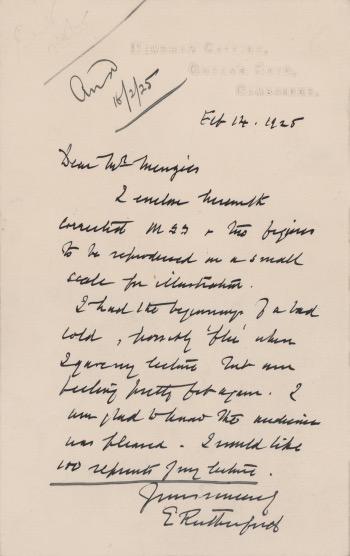 Newnham Cottage,
Queen's Road,
Cambridge.
Ansd
18/2/25
Feb 14. 1925
Dear Mr Menzies
I enclose herewith
corrected MSS & two figures
to be reproduced on a small
scale for illustration.
I had the beginnings of a bad
cold, possibly 'flu' when
I gave my lecture but am
feeling pretty fit again. I
am glad to know the audience
was pleased. I would like
100 reprints of my lecture.
Yours sincerely
E Rutherford